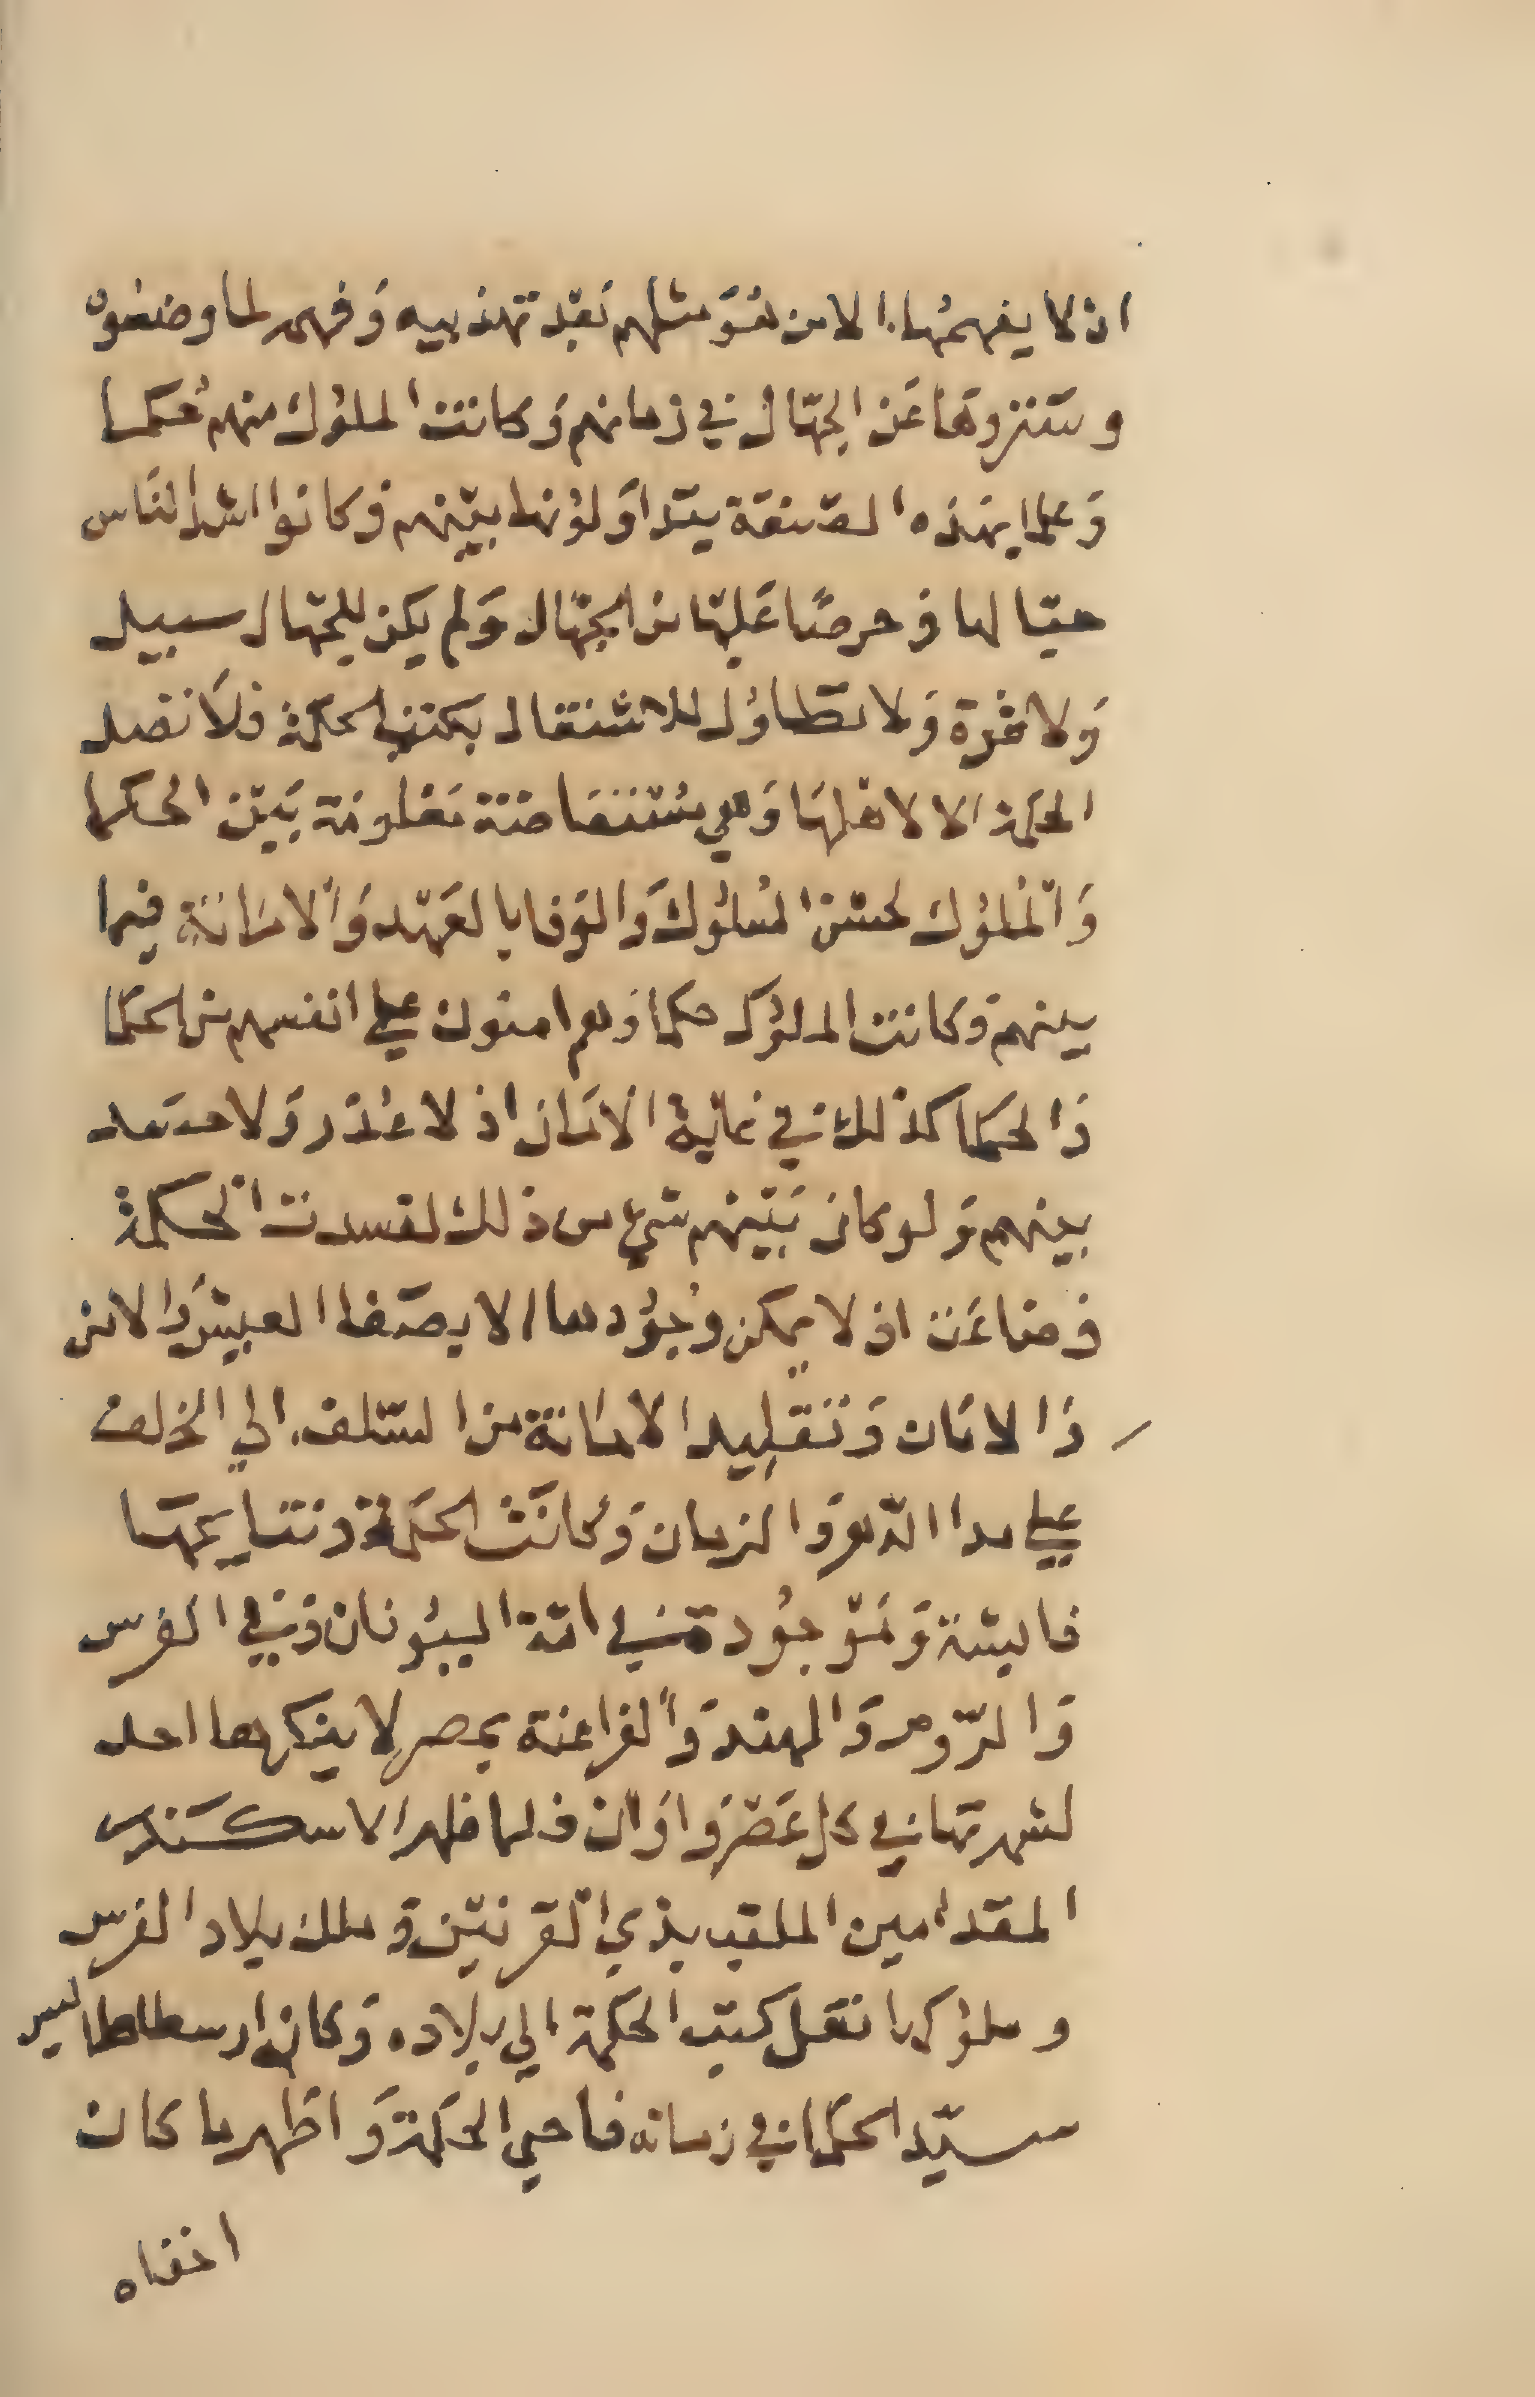 اذ لا يفهمها الا من هو مثلهم بعد تهذيبه وفهم لما وضعوه
وستروها عن الجهال في زمانهم وكانت الملوك منهم حكما
وعلما بهذه الصنعة يتداولونها بينهم وكانوا اشد الناس
حبا لها وحرصًا عليها من الجهال ولم يكن للجهال سبيل
ولا قوة ولا تطاول للاشتغال بكتب الحكمة فلا تصل
الحكمة الا لاهلها وهي مستفاضة معلومة بين الحكما
والملوك لحسن السلوك والوفا بالعهد والامانة فيما
بينهم وكانت الملوك حكما وهم امنون علي انفسهم من الحكما
والحكما كذلك في غاية الامان اذ لا غدر ولا حسد
بينهم ولو كان بينهم شيء من ذلك لفسدت الحكمة
وضاعت اذ لا يمكن وجودها الا بصفا العيش والامن
والامان وتقليد الامانة من السلف الي الخلف
علي مدا الدهر والزمان وكانت الحكمة ونتايجها
فاشية وموجودة في امة اليونان وفي الفرس
والروم والهند والفراعنة بمصر لا ينكرها احد
لشهرتها في كل عصر واوان فلما ظهر الاسكندر
المقدامين الملقب بذي القرنين وملك بلاد الفرس
وملوكها نقل كتب الحكمة الي بلاده وكان ارسطاطاليس
سيّد الحكما في زمانه فاحيي الحكمة واظهر ما كان
اخفاه